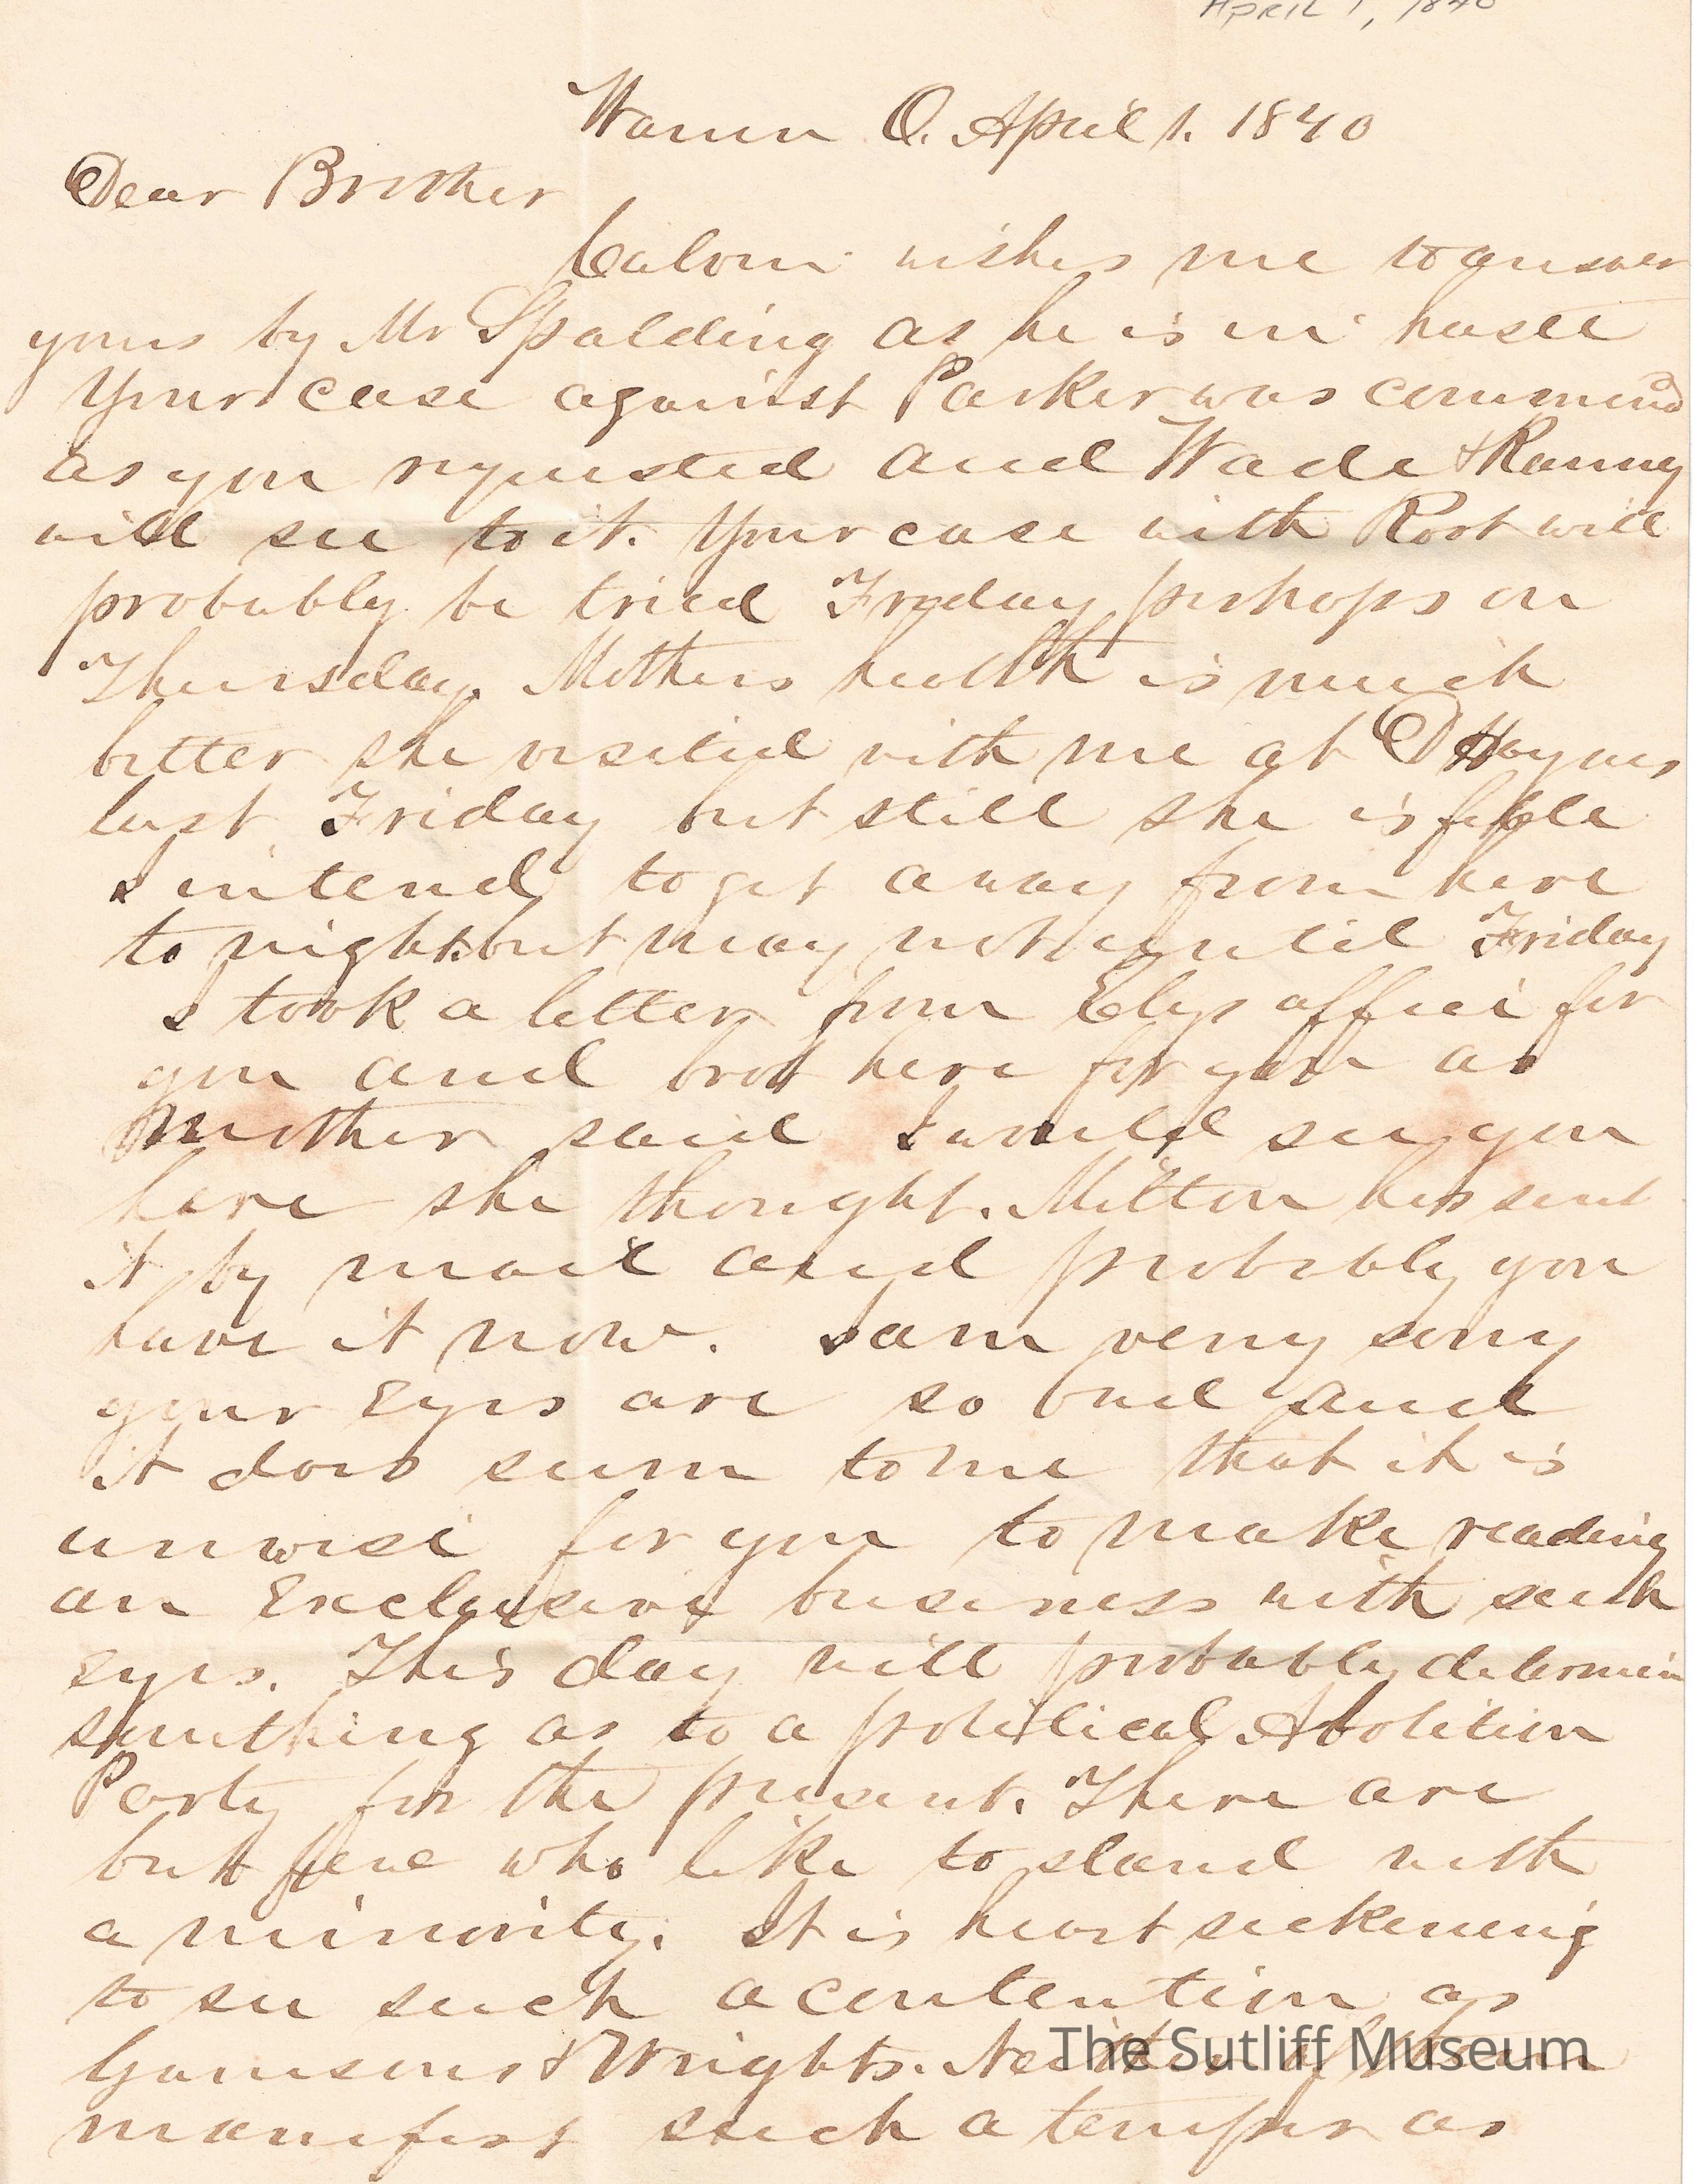 APRIL 1, 1840
Warren O. April 1. 1840
Dear Brother
Calvin wishes me to answer
yours by Mr Spalding as he is in haste
Your case against Parker was commencd
as you requested and Wade & Ranney
will see to it. Your case with Root will
probably be tried Friday perhaps on
Thursday. Mothers health is much
better she visited with me at D Haynes
last Friday but still she is feeble
I intend to get away from here
to night but may not until Friday
I took a letter from Elys office for
you and brot here for you as
Mother said I would see you
here she thought. Milton has sent
it by mail and probably you
have it now. I am very sorry
your Eyes are so bad and
it does seem to me that it is
unwise for you to make reading
an Exclusive business with such
Eyes. This day will probably determin
something as to a political Abolition
Party for the present. There are
but few who like to stand with
a minority. It is heart sickening
to see such a contention as
Garrisons & Wrights. Neither of them
manifest such a temper as
The Sutliff Museum